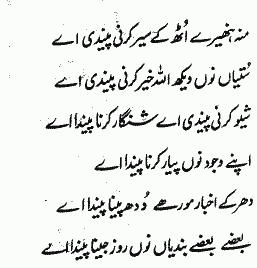 منہ ہنیرے اُٹھ کے سیر کرنی پیندی اے
سُتیاں نوں ویکھ اللہ خیر کرنی پیندی اے
شیو کرنی پیندی اے شنگار کرنا پیندا اے
اپنے وجود نوں پیار کرنا پیندا اے
دھر کے اخبار مورھے دُدھ پینا پیندا اے
بعضے بعضے بندیاں نوں روز جینا پیندا اے